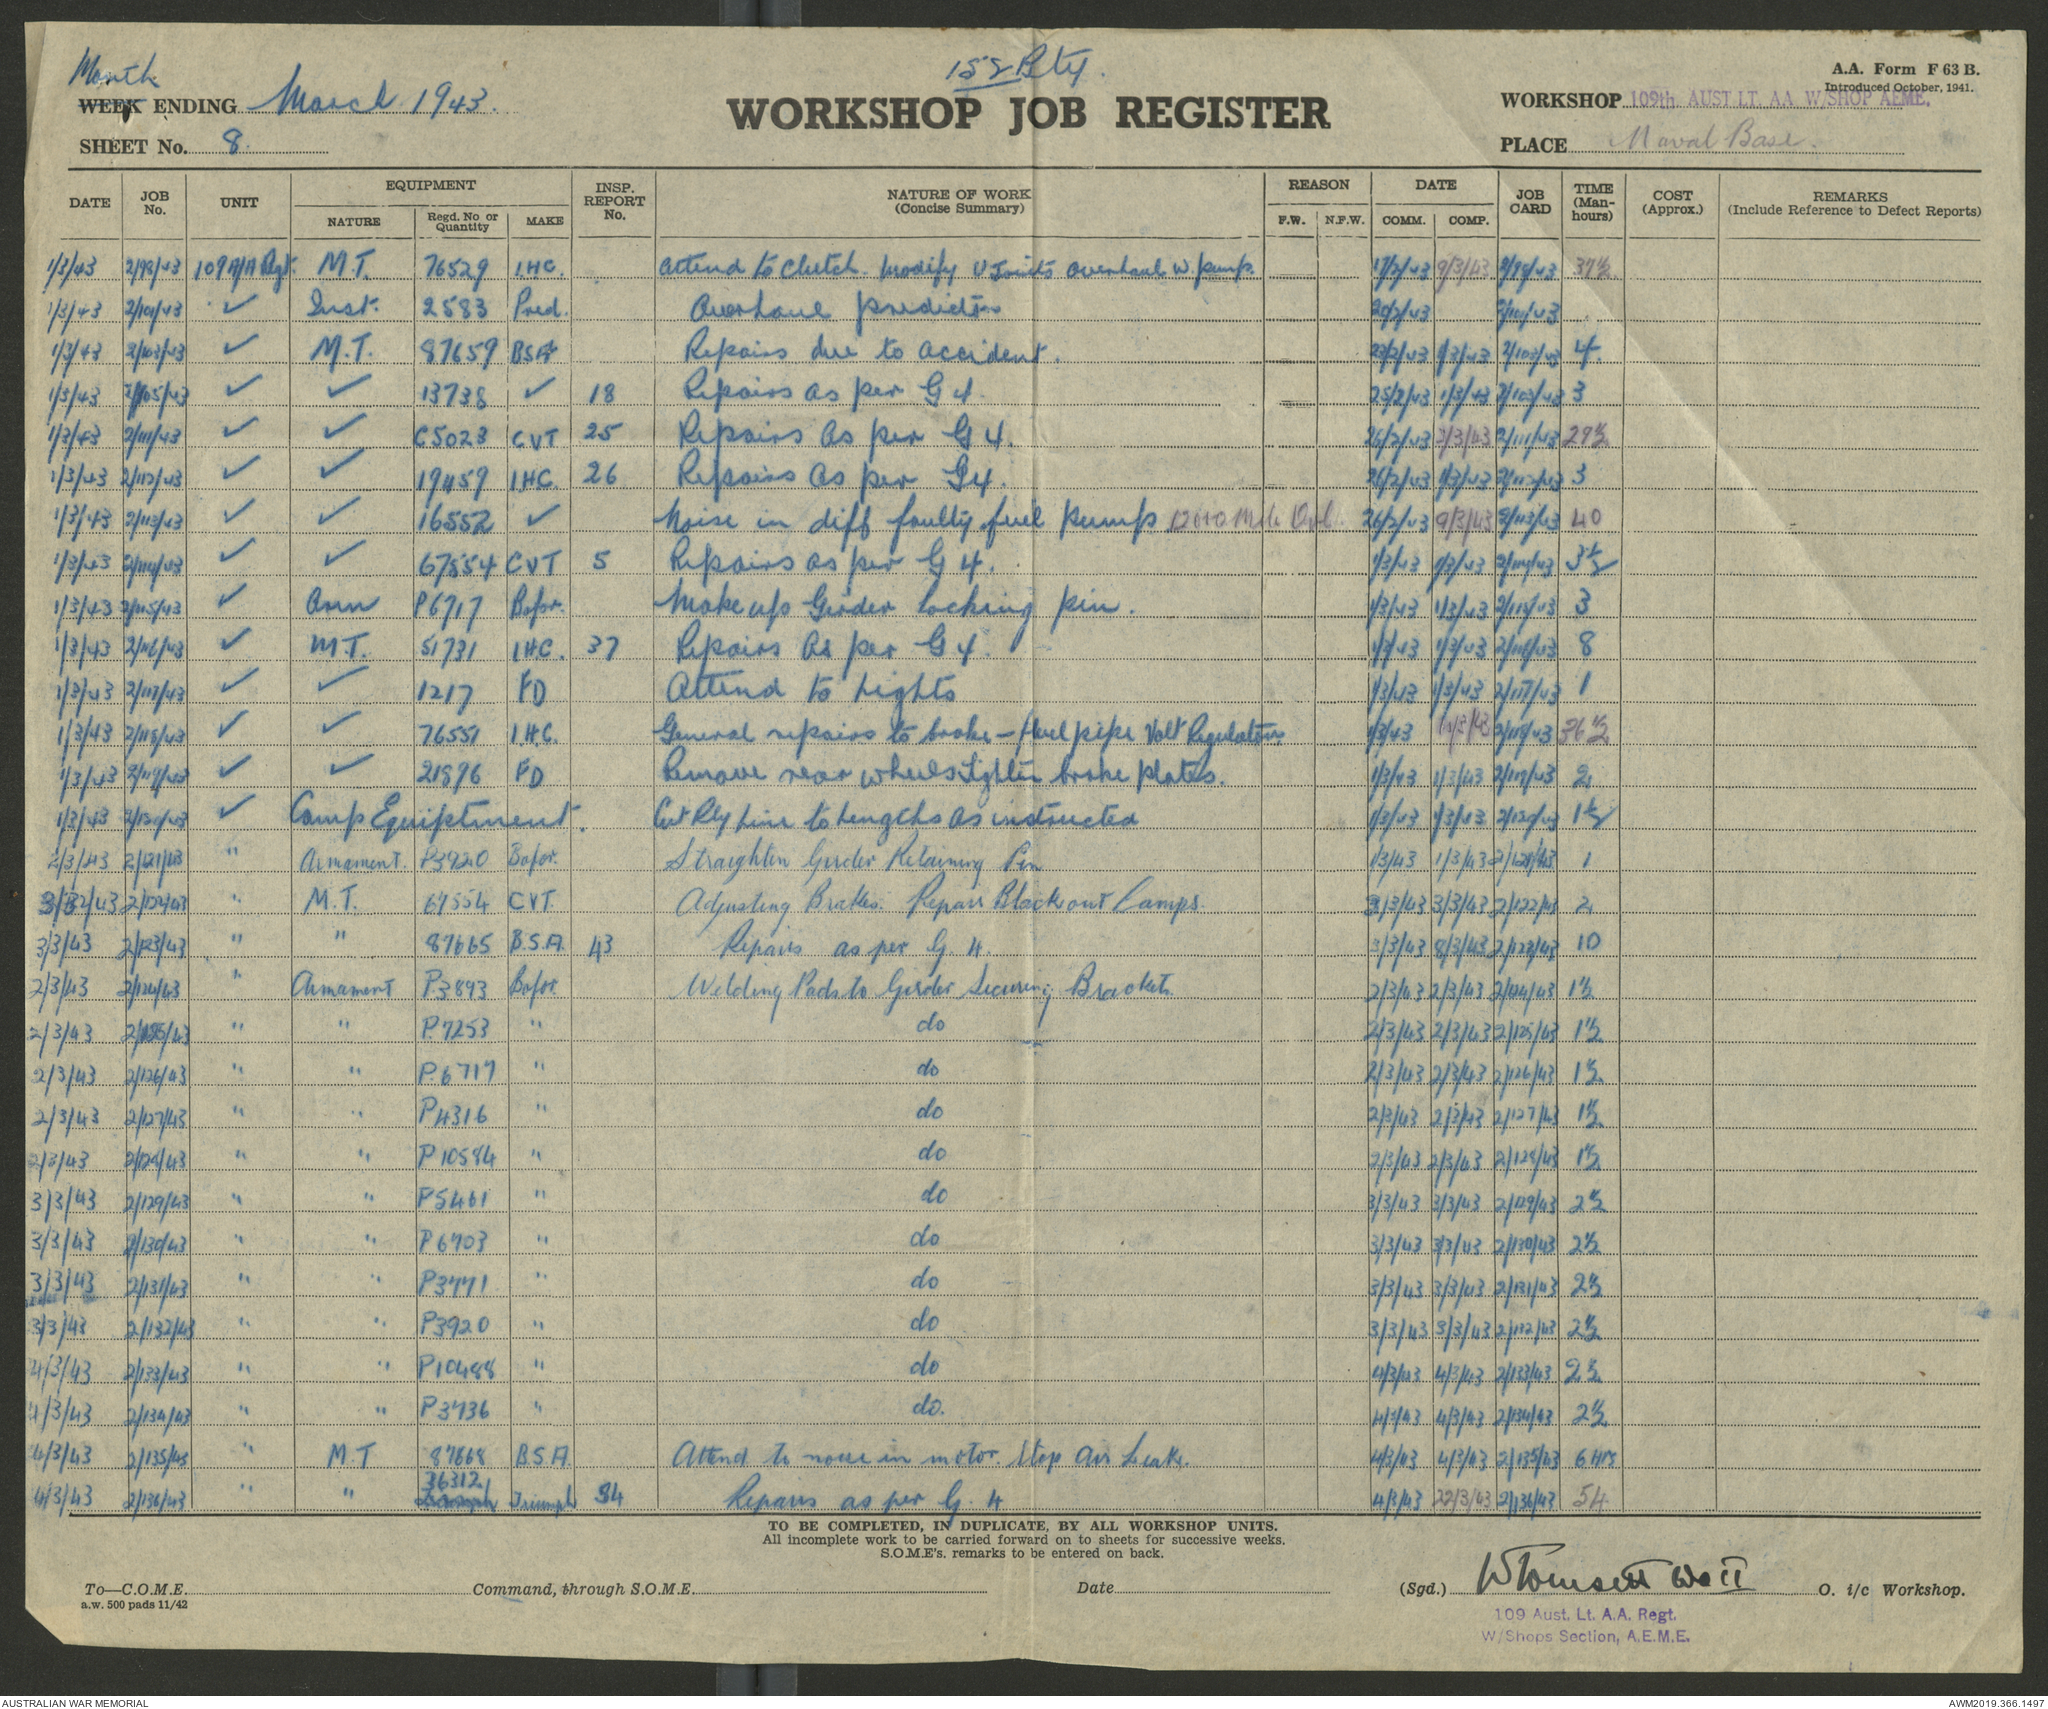 Month
152 Bty.
A.A. Form F 63 B.
Introduced October, 1941.
WEEK ENDING March 1943.
WORKSHOP JOB REGISTER
WORKSHOP 109th AUST LT. AA W/SHOP AEME.
SHEET No. 8.
PLACE Naval Base.
DATE JOB No. UNIT EQUIPMENT NATURE Regd. No or Quantity MAKE INSP. REPORT No. NATURE OF WORK (Concise Summary) REASON F.W. N.F.W. DATE COMM. COMP. JOB CARD TIME (Man-hours) COST (Approx.) REMARKS (Include Reference to Defect Reports)
1/3/43 2/98/43 109 A/A Regt. M.T. 76529 I.H.C. Attend to Clutch. Modify U Joints overhaul w. pump. 17/2/43 9/3/43 2/98/43 37½
1/3/43 2/101/43 ✓ Inst. 2583 Pred. Overhaul predictor 20/2/43 2/101/43
1/3/43 2/103/43 ✓ M.T. 87659 BSA Repairs due to accident. 23/2/43 1/3/43 2/103/43 4.
1/3/43 2/105/43 ✓ ✓ 13738 ✓ 18 Repairs as per G 4. 25/2/43 1/3/43 2/105/43 3
1/3/43 2/111/43 ✓ ✓ C5023 CVT 25 Repairs as per G 4. 26/2/43 3/3/43 2/111/43 29½
1/3/43 2/112/43 ✓ ✓ 19459 I.H.C. 26 Repairs as per G4. 26/2/43 1/3/43 2/112/43 3
1/3/43 2/113/43 ✓ ✓ 16552 ✓ Noise in diff faulty fuel pump 26/2/43 9/3/43 2/113/43 40
1/3/43 2/114/43 ✓ ✓ 67554 CVT 5 Repairs as per G 4. 1/3/43 1/3/43 2/114/43 3½
1/3/43 2/115/43 ✓ Arm P6717 Bofor. Make up Girder locking pin. 1/3/43 1/3/43 2/115/43 3
1/3/43 2/116/43 ✓ M.T. 51731 I.H.C. 37 Repairs as per G 4. 1/3/43 1/3/43 2/116/43 8
1/3/43 2/117/43 ✓ ✓ 1217 FD Attend to lights 1/3/43 1/3/43 2/117/43 1
1/3/43 2/118/43 ✓ ✓ 76551 I.H.C. General repairs to brake - fuel pipe Volt Regulator 1/3/43 2/118/43 36½
1/3/43 2/119/43 ✓ ✓ 21896 FD Remove rear wheels tighten brake plates. 1/3/43 1/3/43 2/119/43 2
1/3/43 2/120/43 ✓ Camp Equiptment. Cut Rly Line to lengths as instructed 1/3/43 1/3/43 2/120/43 1½
2/3/43 2/121/43 " Armament. P3920 Bofor. Straighten Girder Retaining Pin 1/3/43 1/3/43 2/121/43 1
3/3/43 2/122/43 " M.T. 67554 CVT. Adjusting Brakes. Repair Blackout Lamps. 3/3/43 3/3/43 2/122/43 2
3/3/43 2/123/43 " " 87665 B.S.A. 43 Repairs as per G. 4. 3/3/43 8/3/43 2/123/43 10
2/3/43 2/124/43 " Armament P3893 Bofor. Welding Pads to Girder Securing Brackets. 2/3/43 2/3/43 2/124/43 1½
2/3/43 2/125/43 " " P.7253 " do 2/3/43 2/3/43 2/125/43 1½
2/3/43 2/126/43 " " P.6717 " do 2/3/43 2/3/43 2/126/43 1½
2/3/43 2/127/43 " " P4316 " do 2/3/43 2/3/43 2/127/43 1½
2/3/43 2/128/43 " " P10584 " do 2/3/43 2/3/43 2/128/43 1½
3/3/43 2/129/43 " " P5461 " do 3/3/43 3/3/43 2/129/43 2½
3/3/43 2/130/43 " " P6703 " do 3/3/43 3/3/43 2/130/43 2½
3/3/43 2/131/43 " " P3771 " do 3/3/43 3/3/43 2/131/43 2½
3/3/43 2/132/43 " " P3920 " do 3/3/43 3/3/43 2/132/43 2½
4/3/43 2/133/43 " " P10488 " do 4/3/43 4/3/43 2/133/43 2½
4/3/43 2/134/43 " " P3736 " do. 4/3/43 4/3/43 2/134/43 2½
4/3/43 2/135/43 " M.T 87668 B.S.A. Attend to noise in motor. Stop Air Leaks. 4/3/43 4/3/43 2/135/43 6 Hrs
4/3/43 2/136/43 " " 36312 Triumph 34 Repairs as per G. 4 4/3/43 22/3/43 2/136/43 54
TO BE COMPLETED, IN DUPLICATE, BY ALL WORKSHOP UNITS.
All incomplete work to be carried forward on to sheets for successive weeks.
S.O.M.E's. remarks to be entered on back.
To—C.O.M.E. Command, through S.O.M.E. Date (Sgd.) WTomsett WO II O. i/c Workshop.
a.w. 500 pads 11/42
109 Aust. Lt. A.A. Regt.
W/Shops Section, A.E.M.E.
AUSTRALIAN WAR MEMORIAL
AWM2019.366.1497